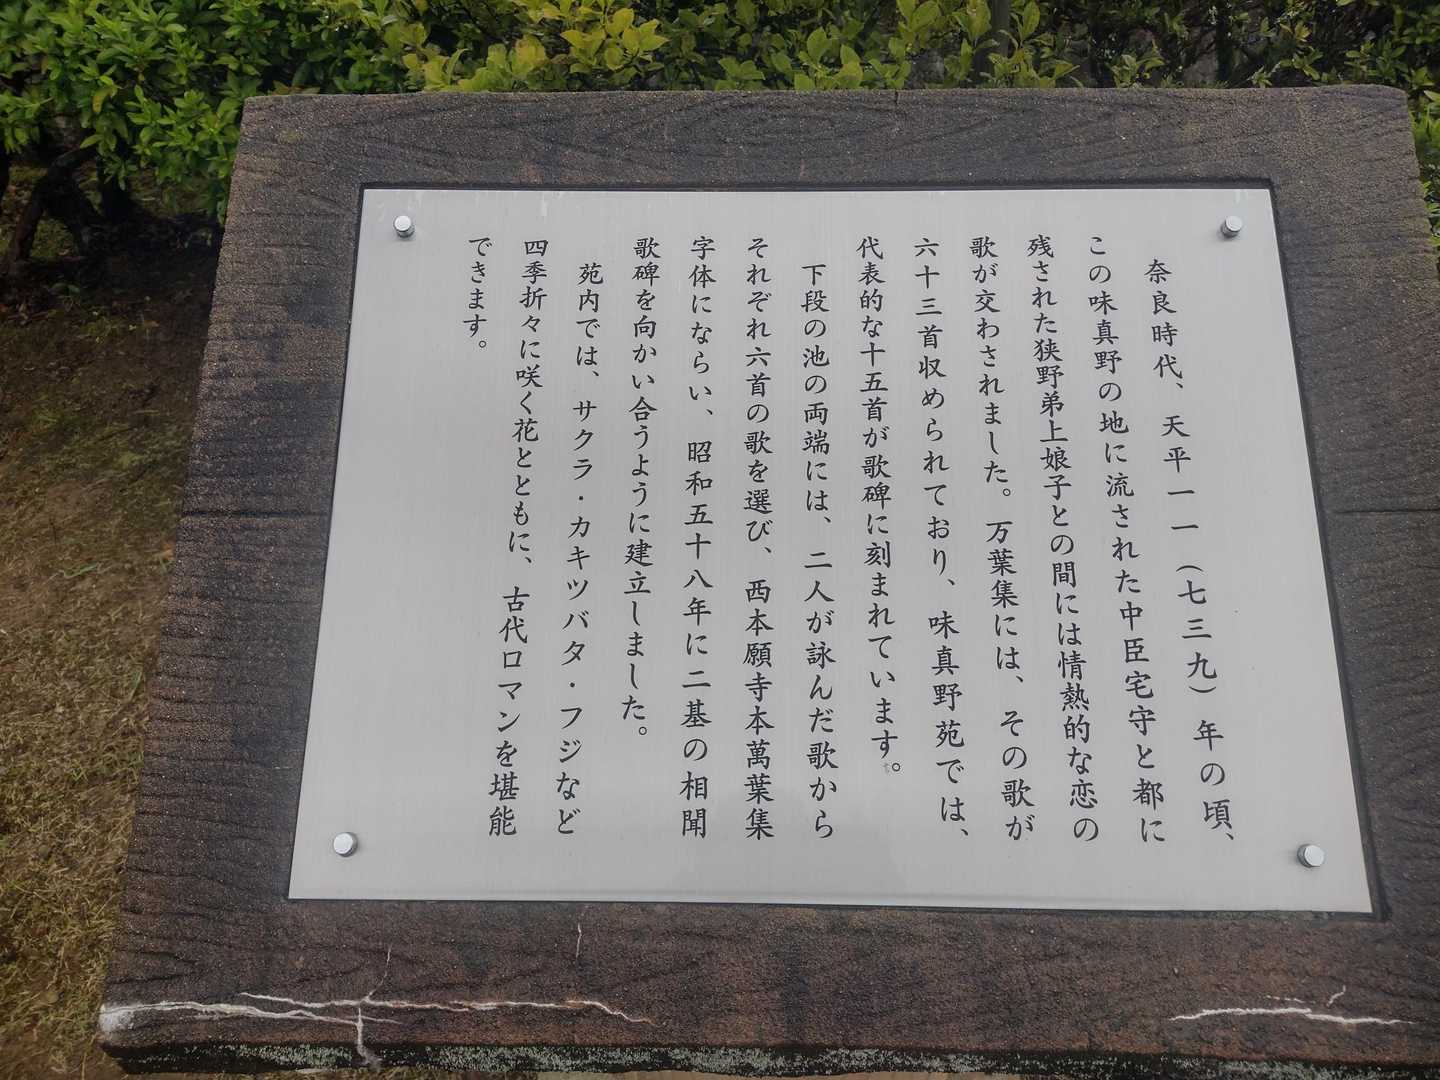 奈良時代、天平一一（七三九）年の頃、
この味真野の地に流された中臣宅守と都に
残された狭野弟上娘子との間には情熱的な恋の
歌が交わされました。万葉集には、その歌が
六十三首収められており、味真野苑では、
代表的な十五首が歌碑に刻まれています。
下段の池の両端には、二人が詠んだ歌から
それぞれ六首の歌を選び、西本願寺本萬葉集
字体にならい、昭和五十八年に二基の相聞
歌碑を向かい合うように建立しました。
苑内では、サクラ・カキツバタ・フジなど
四季折々に咲く花とともに、古代ロマンを堪能
できます。